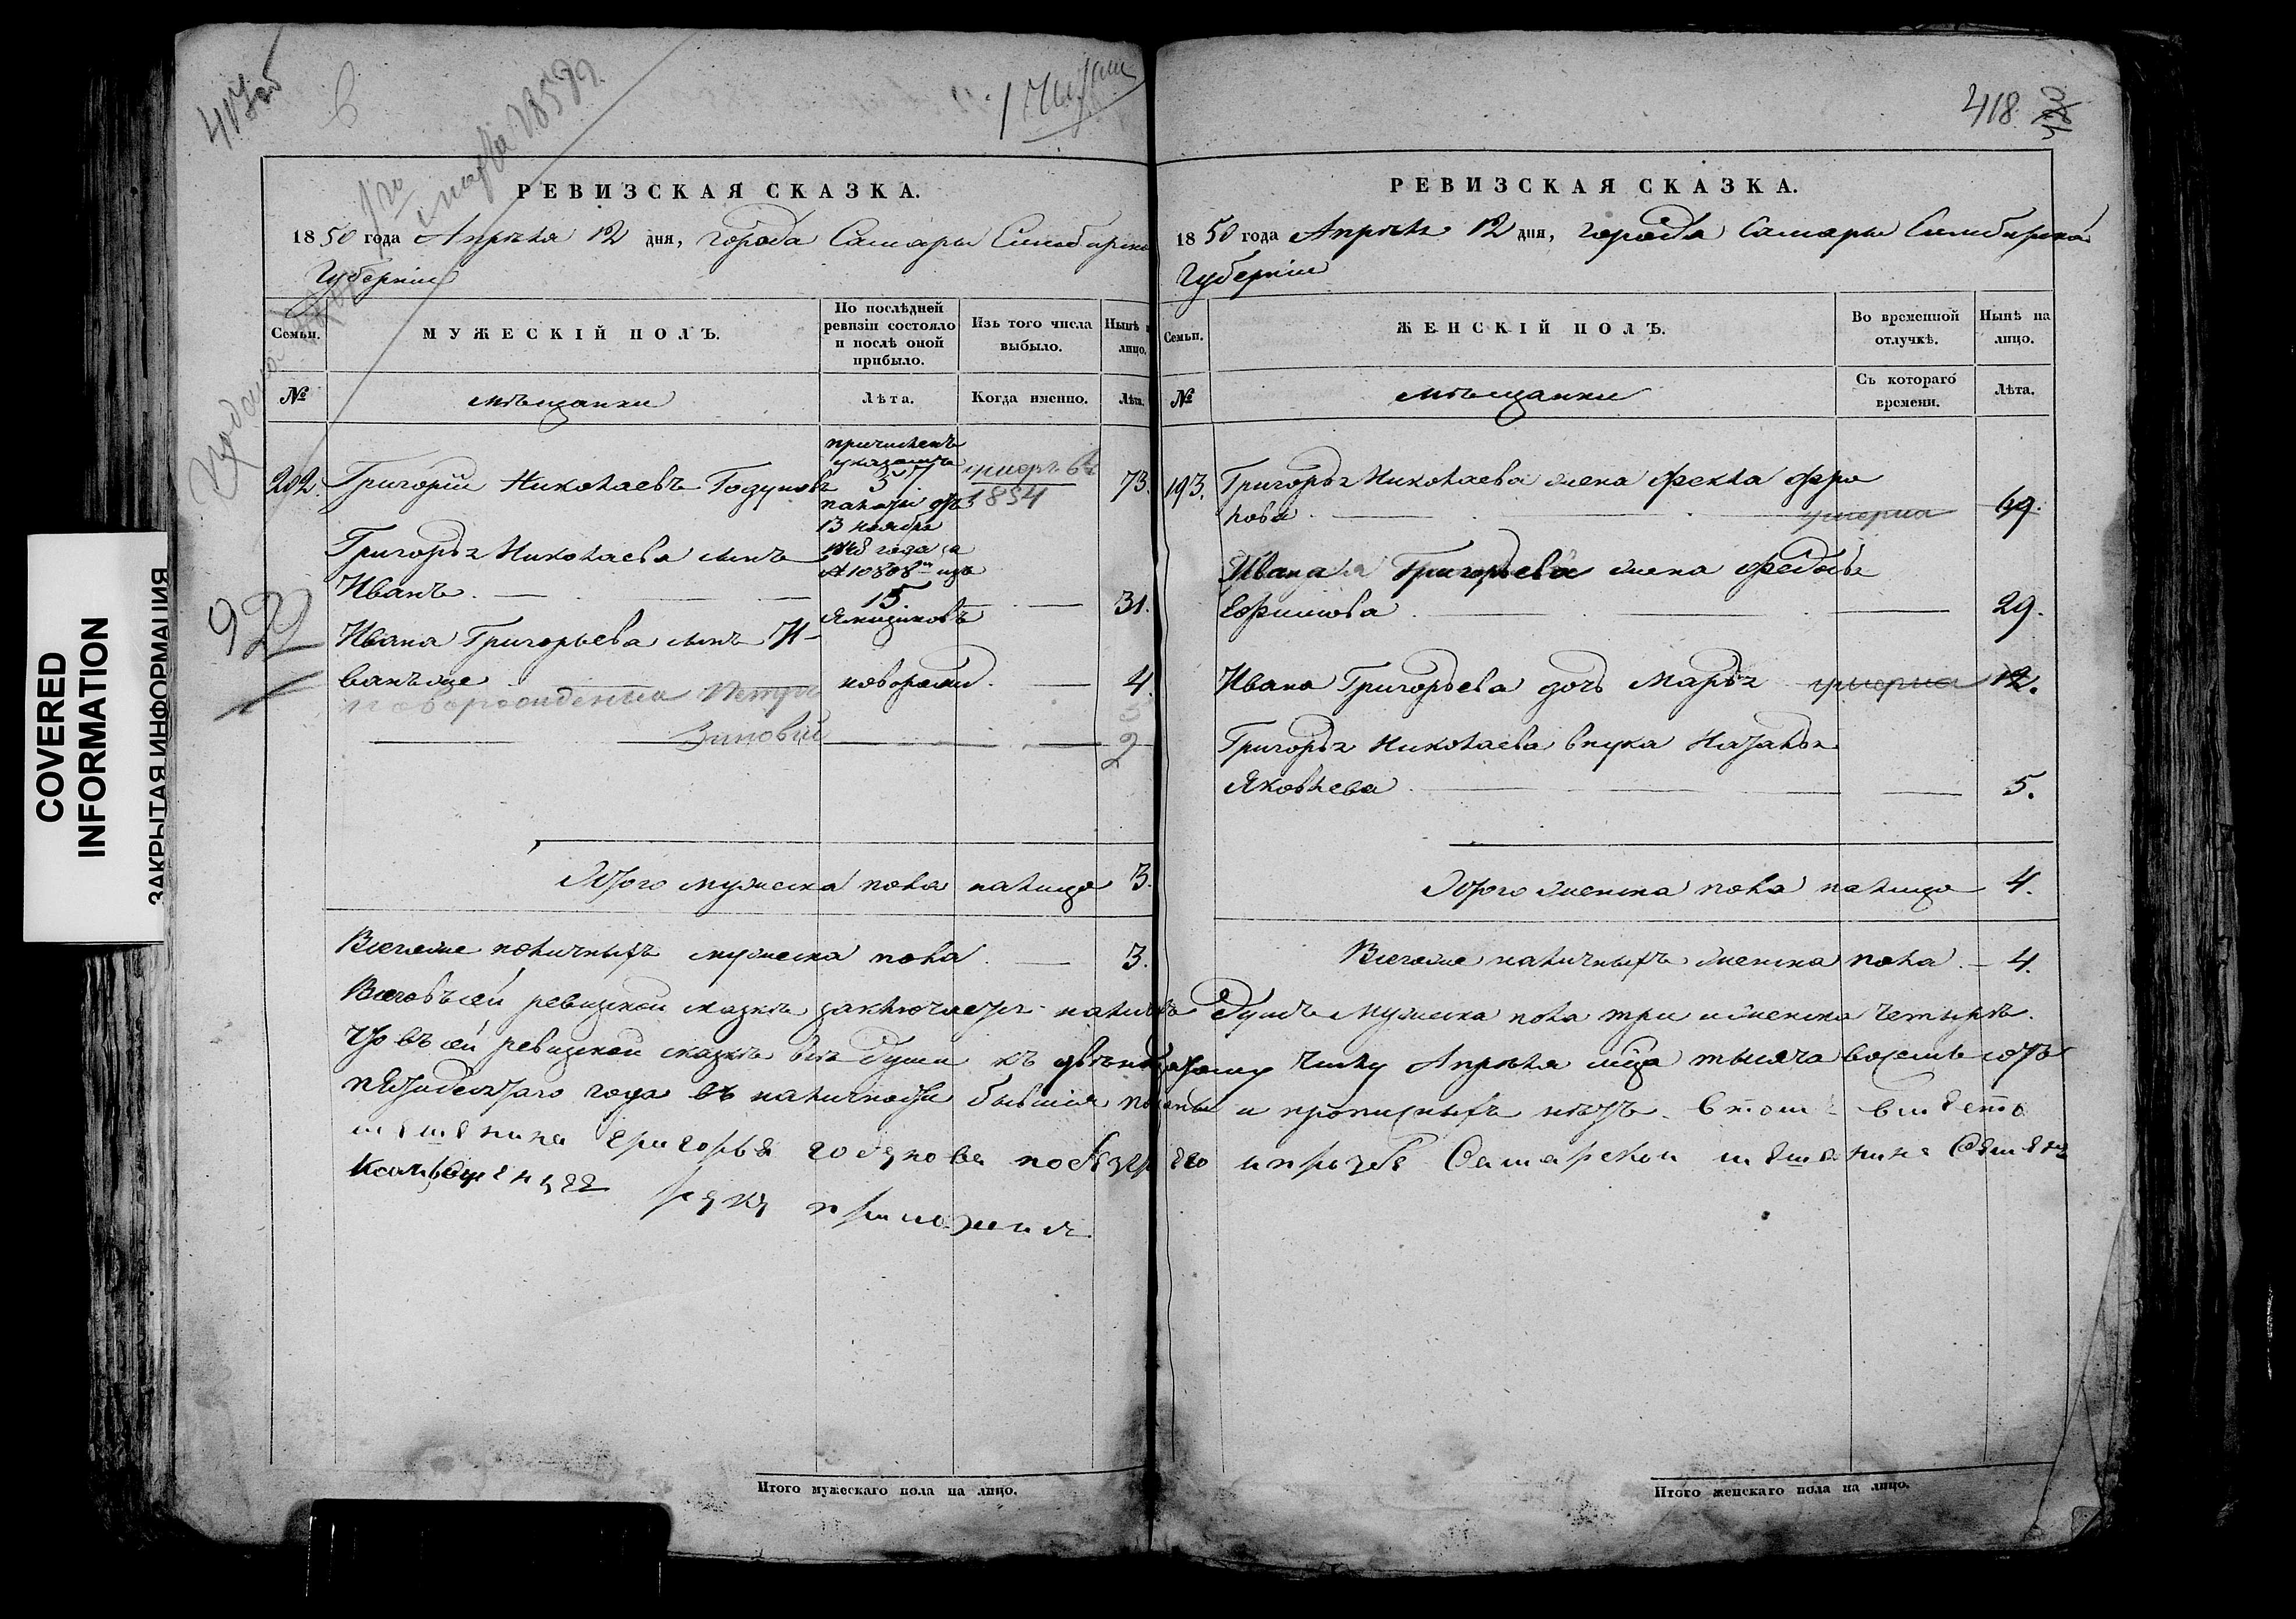 COVERED
INFORMATION
ЗАКРЫТАЯ ИНФОРМАЦИЯ
417об
марта 1859 г.
РЕВИЗСКАЯ СКАЗКА.
1850 года Апрѣля 12 дня, города Самары Симбирской
Губерніи
Семьи.
МУЖЕСКІЙ ПОЛЪ.
По послѣдней ревизіи состояло и послѣ оной прибыло.
Изъ того числа выбыло.
Нынѣ на лицо.
№
мѣщанки
Лѣта.
Когда именно.
Лѣта.
причисленъ
указомъ
202. Григорій Николаевъ Годуновъ 37. умеръ въ 1854 73.
палаты отъ
13 ноября
1848 года за
№ 10808м изъ
Григорья Николаева сынъ
Иванъ. 15. 31.
Ямщиковъ
Ивана Григорьева сынъ И-
ванъ же новорожд. 4.
новорожденныя Петръ 5
Зиновій 2
922
Итого мужеска пола налицо 3.
Всего же наличныхъ мужеска пола. 3.
418
РЕВИЗСКАЯ СКАЗКА.
1850 года Апрѣля 12 дня, города Самары Симбирской
Губерніи
Семьи.
ЖЕНСКІЙ ПОЛЪ.
Во временной отлучкѣ.
Нынѣ на лицо.
№
мѣщанки
Съ котораго времени.
Лѣта.
193. Григорья Николаева жена Фекла Фро
лова. умерла 69.
Ивана Григорьева жена Федосья
Ефимова 29.
Ивана Григорьева дочь Марья умерла 12.
Григорья Николаева внука Наталья
Яковлева 5.
Итого женска пола налицо 4.
Всего же наличныхъ женска пола. 4.
Всего въ сей ревизской сказкѣ заключается налицо Душъ Мужеска пола три и женска четыре.
Что въ сей ревизской сказкѣ всѣ души къ двѣнадцатому числу Апрѣля мца тысяча восемь сотъ
пятидесятаго года въ наличности бывшія показаны и прописныхъ нѣтъ. в томъ вместо
мещенина Григорья годунова по безгр его и прозбе Самарской мещенинъ Семенъ
руку приложилъ
Итого мужескаго пола на лицо.
Итого женскаго пола на лицо.